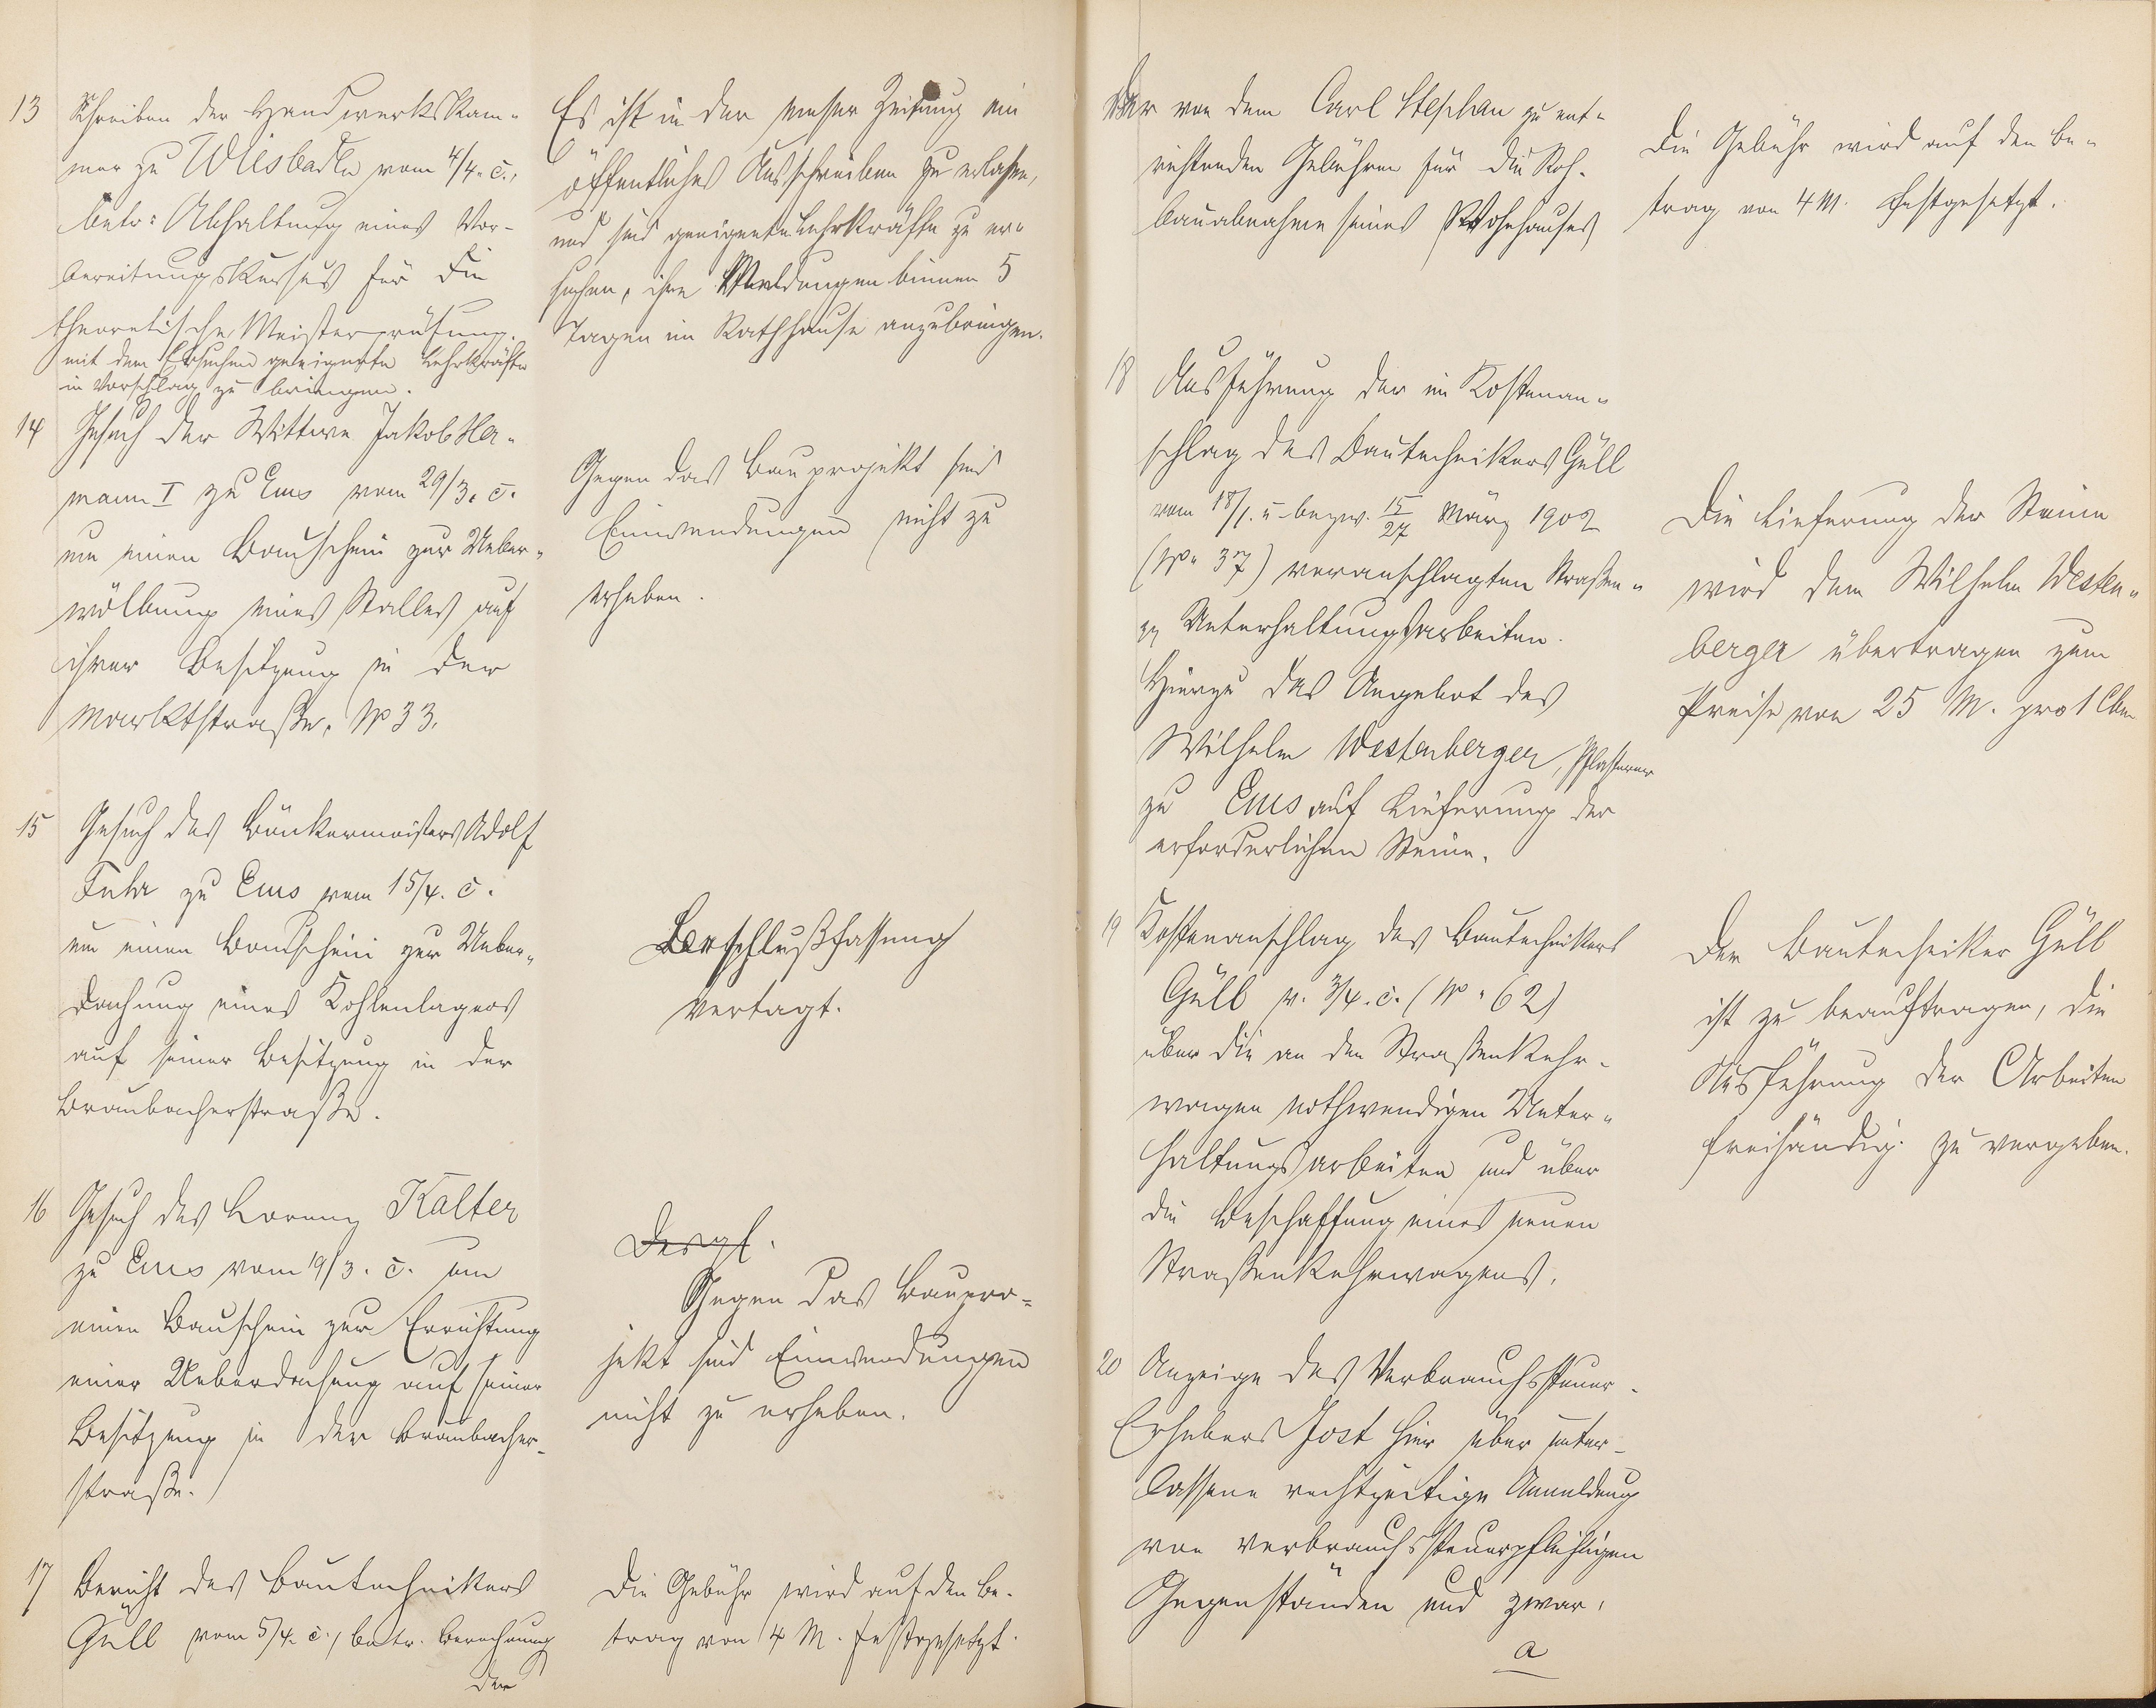 13 Schreiben der Handwerkskam-
mer zu Wiesbaden vom 4/4. c.,
betr: Abhaltung eines Vor-
bereitungskursus für die
theoretische Meisterprüfung.
mit dem Ersuchen geeignete Lehrkräfte
in Vorschlag zu bringen.
Es ist in der Emser Zeitung ein
öffentliches Ausschreiben zu erlassen,
und sind geeignete Lehrkräfte zu er-
suchen, ihre Meldungen binnen 5
Tagen im Rathhause anzubringen.
14 Gesuch der Wittwe Jakob Her-
mann I zu Ems vom 29/3. c.
um einen Bauschein zur Ueber-
wölbung eines Stalles auf
ihrer Besitzung in der
Marktstraße, No 33.
Gegen das Bauprojekt sind
Einwendungen nicht zu
erheben.
15 Gesuch des Bäckermeisters Adolf
Fuhr zu Ems vom 15/4. c.
um einen Bauschein zur Ueber-
dachung eines Kohlenlagers
auf seiner Besitzung in der
Braubacherstraße.
Beschlußfassung
vertagt.
16 Gesuch des Lorenz Kalter
zu Ems vom 19/3. c. um
einen Bauschein zur Errichtung
einer Ueberdachung auf seiner
Besitzung in der Braubacher-
straße.
Desgl.
Gegen das Baupro-
jekt sind Einwendungen
nicht zu erheben.
17 Bericht des Bautechnikers
Güll vom 5/4. c., betr. Berechnung
der
Die Gebühr wird auf den Be-
trag von 4 M. festgesetzt.
der von dem Carl Stephan zu ent-
richtenden Gebühren für die Roh-
bauabnahme seines Wohnhauses
Die Gebühr wird auf den Be-
trag von 4 M. festgesetzt.
18 Ausführung der im Kostenan-
schlag des Bautechnikers Güll
vom 18/1. u. bezw. 15/27 März 1902
(No 37) veranschlagten Straßen-
Unterhaltungsarbeiten.
Hierzu das Angebot des
Wilhelm Westenberger, Pflasterer
zu Ems auf Lieferung der
erforderlichen Steine.
Die Lieferung der Steine
wird dem Wilhelm Westen-
berger übertragen zum
Preise von 25 M. pro 1 Cbm
19 Kostenanschlag des Bautechnikers
Güll v. 3/4. c. (No 62)
über die an den Straßenkehr-
wagen nothwendigen Unter-
haltungsarbeiten und über
die Beschaffung eines neuen
Straßenkehrwagens.
Der Bautechniker Güll
ist zu beauftragen, die
Ausführung der Arbeiten
freihändig zu vergeben.
20 Anzeige des Verbrauchssteuer-
Erhebers Jost hier über unter-
lassene rechtzeitige Anmeldung
von verbrauchssteuerpflichtigen
Gegenständen und zwar,
a